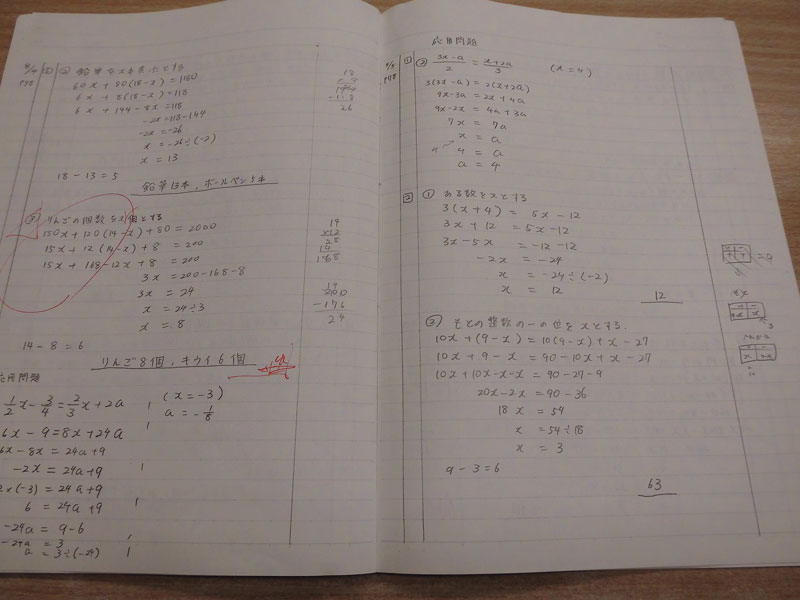 鉛筆をx本買ったとする
60x + 80(18-x) = 1180
6x + 8(18-x) = 118
6x + 144 - 8x = 118
-2x = 118 - 144
-2x = -26
x = -26÷(-2)
x = 13
18 - 13 = 5
鉛筆13本、ボールペン5本
18
144
-118
26
りんごの個数をx個とする
150x + 120(14-x) + 80 = 2000
15x + 12(14-x) + 8 = 200
15x + 168 - 12x + 8 = 200
3x = 200 - 168 - 8
3x = 24
x = 24÷3
x = 8
14 - 8 = 6
りんご8個、キウイ6個
14
×12
28
14
168
200
-176
24
応用問題
1/2x - 3/4 = 2/3x + 2a (x = -3)
6x - 9 = 8x + 24a
a = -1/8
6x - 8x = 24a + 9
-2x = 24a + 9
-2×(-3) = 24a + 9
6 = 24a + 9
-24a = 9 - 6
-24a = 3
a = 3÷(-24)
応用問題
1 ② (3x-a)/2 = (x+2a)/3 (x = 4)
3(3x-a) = 2(x+2a)
9x - 3a = 2x + 4a
9x - 2x = 4a + 3a
7x = 7a
x = a
4 = a
a = 4
2 ① ある数をxとする
3(x+4) = 5x - 12
3x + 12 = 5x - 12
3x - 5x = -12 - 12
-2x = -24
x = -24÷(-2)
x = 12
12
② もとの整数の一の位をxとする.
10x + (9-x) = 10(9-x) + x - 27
10x + 9 - x = 90 - 10x + x - 27
10x + 10x - x - x = 90 - 27 - 9
20x - 2x = 90 - 36
18x = 54
x = 54÷18
x = 3
9 - 3 = 6
63